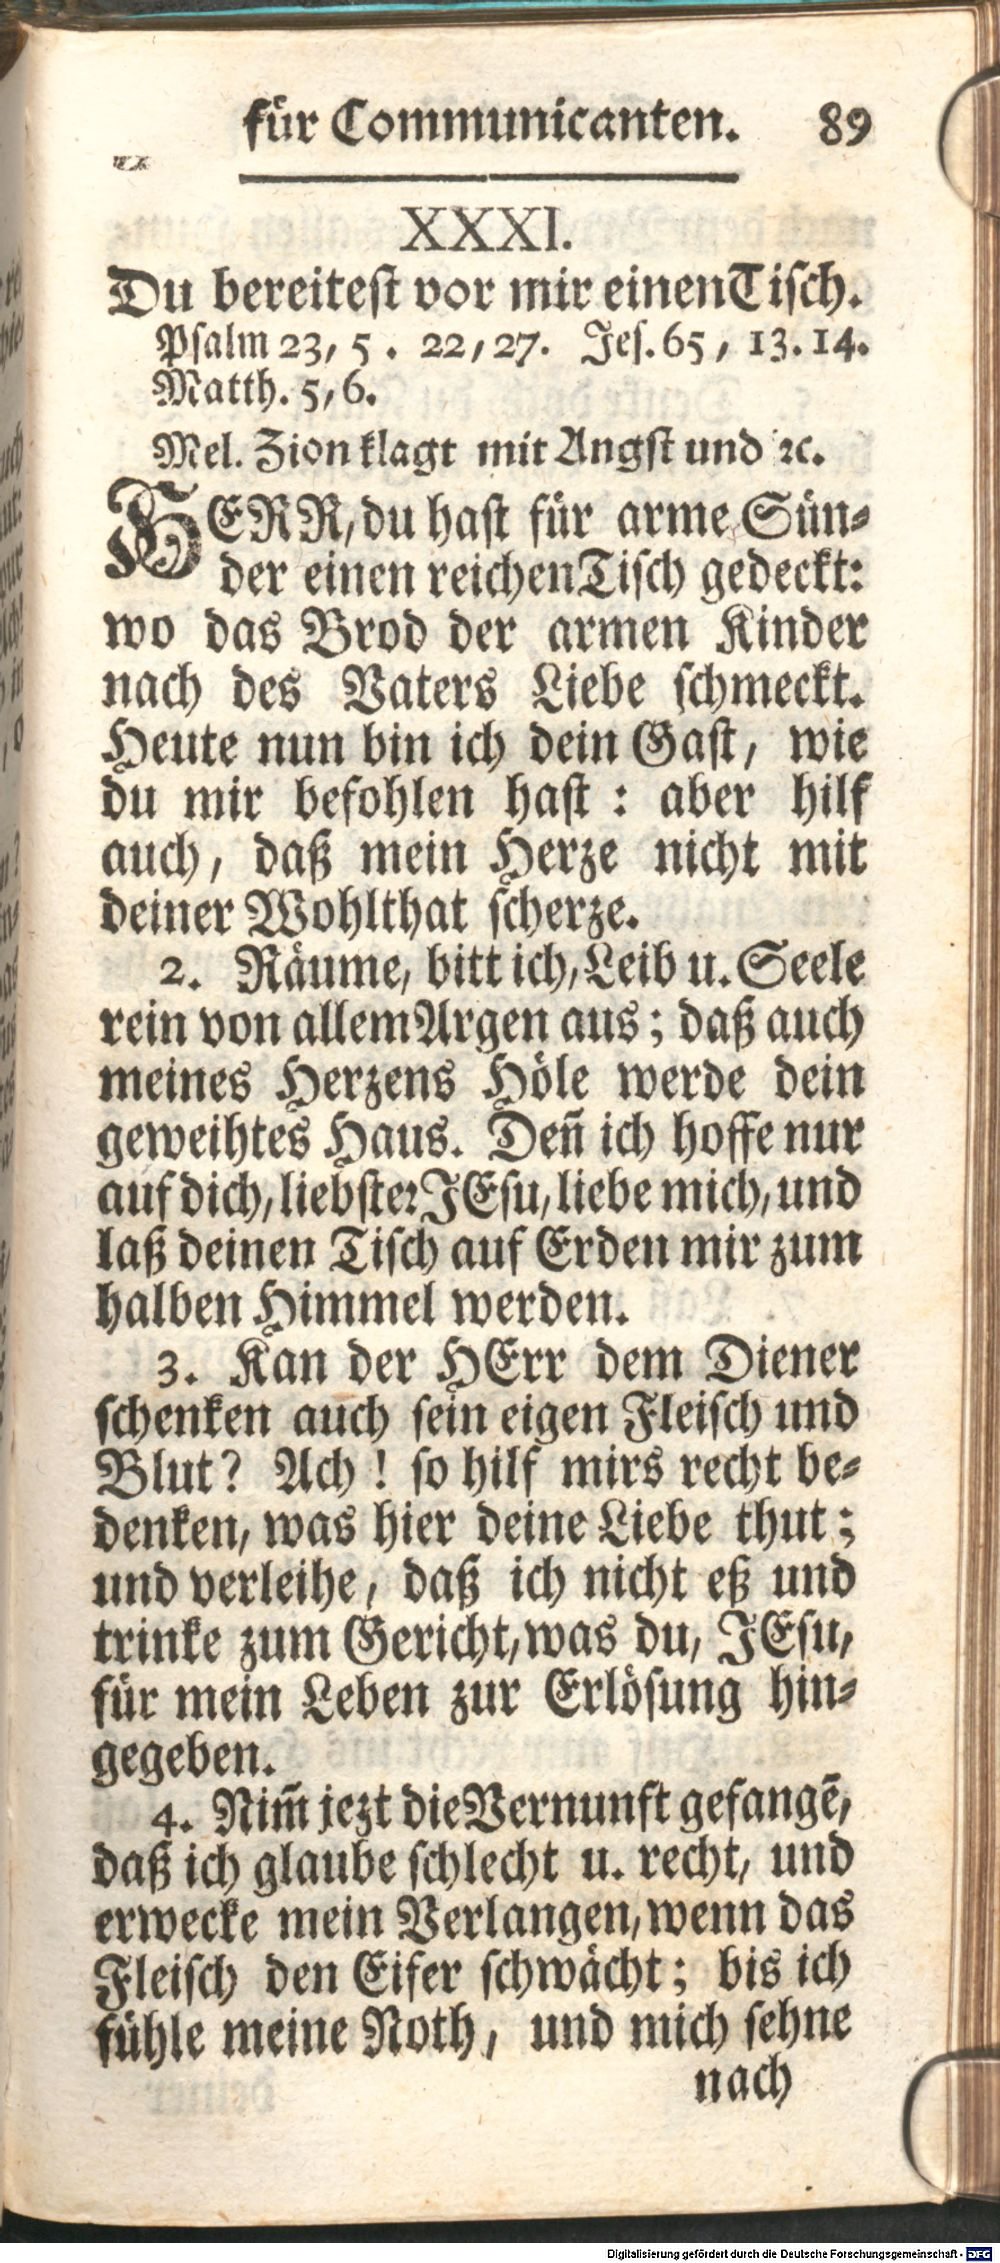 für Communicanten. 89
XXXI.
Du bereitest vor mir einen Tisch.
Psalm 23, 5. 22, 27. Jes. 65, 13. 14.
Matth. 5, 6.
Mel. Zion klagt mit Angst und ꝛc.
HERR, du hast für arme Sün-
der einen reichen Tisch gedeckt:
wo das Brod der armen Kinder
nach des Vaters Liebe schmeckt.
Heute nun bin ich dein Gast, wie
du mir befohlen hast: aber hilf
auch, daß mein Herze nicht mit
deiner Wohlthat scherze.
2. Räume, bitt ich, Leib u. Seele
rein von allem Argen aus; daß auch
meines Herzens Höle werde dein
geweihtes Haus. Deñ ich hoffe nur
auf dich, liebster JEsu, liebe mich, und
laß deinen Tisch auf Erden mir zum
halben Himmel werden.
3. Kan der HErr dem Diener
schenken auch sein eigen Fleisch und
Blut? Ach! so hilf mirs recht be-
denken, was hier deine Liebe thut;
und verleihe, daß ich nicht eß und
trinke zum Gericht, was du, JEsu,
für mein Leben zur Erlösung hin-
gegeben.
4. Nim̃ jezt die Vernunft gefangẽ,
daß ich glaube schlecht u. recht, und
erwecke mein Verlangen, wenn das
Fleisch den Eifer schwächt; bis ich
fühle meine Noth, und mich sehne
nach
Digitalisierung gefördert durch die Deutsche Forschungsgemeinschaft - DFG